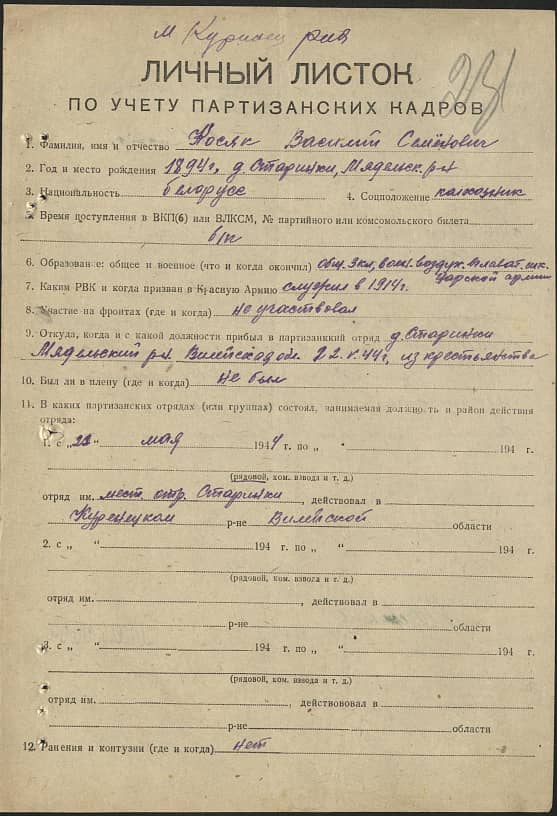 м Куренец рна
231
ЛИЧНЫЙ ЛИСТОК
ПО УЧЕТУ ПАРТИЗАНСКИХ КАДРОВ
1. Фамилия, имя и отчество Косяк Василий Семёнович
2. Год и место рождения 1894г, д. Старинки, Мядельск. р-н
3. Национальность белорусс 4. Соцположение колхозник
5. Время поступления в ВКП(б) или ВЛКСМ, № партийного или комсомольского билета
б/п
6. Образование: общее и военное (что и когда окончил) общ. 3 кл, воен. воздух. плават. шк.
царской армии
7. Каким РВК и когда призван в Красную Армию служил в 1914г.
8. Участие на фронтах (где и когда) не участвовал
9. Откуда, когда и с какой должности прибыл в партизанкий отряд д. Старинки
Мядельский р-н. Вилейской обл. 22.V.44г, из крестьянства
10. Был ли в плену (где и когда) не был
11. В каких партизанских отрядах (или группах) состоял, занимаемая должность и район действия
отряда:
1. с „22 “ мая 1944 г. по „ “ 194 г.
(рядовой, ком. взвода и т. д.)
отряд им. мест. отр. Старинки, действовал в
Куренецком р-не Вилейской области
2. с „ “ 194 г. по „ “ 194 г.
(рядовой, ком. взвода и т. д.)
отряд им. , действовал в
р-не области
3. с „ “ 194 г. по „ “ 194 г.
(рядовой, ком. взвода и т. д.)
отряд им. , действововал в
р-не области
12. Ранения и контузии (где и когда) нет